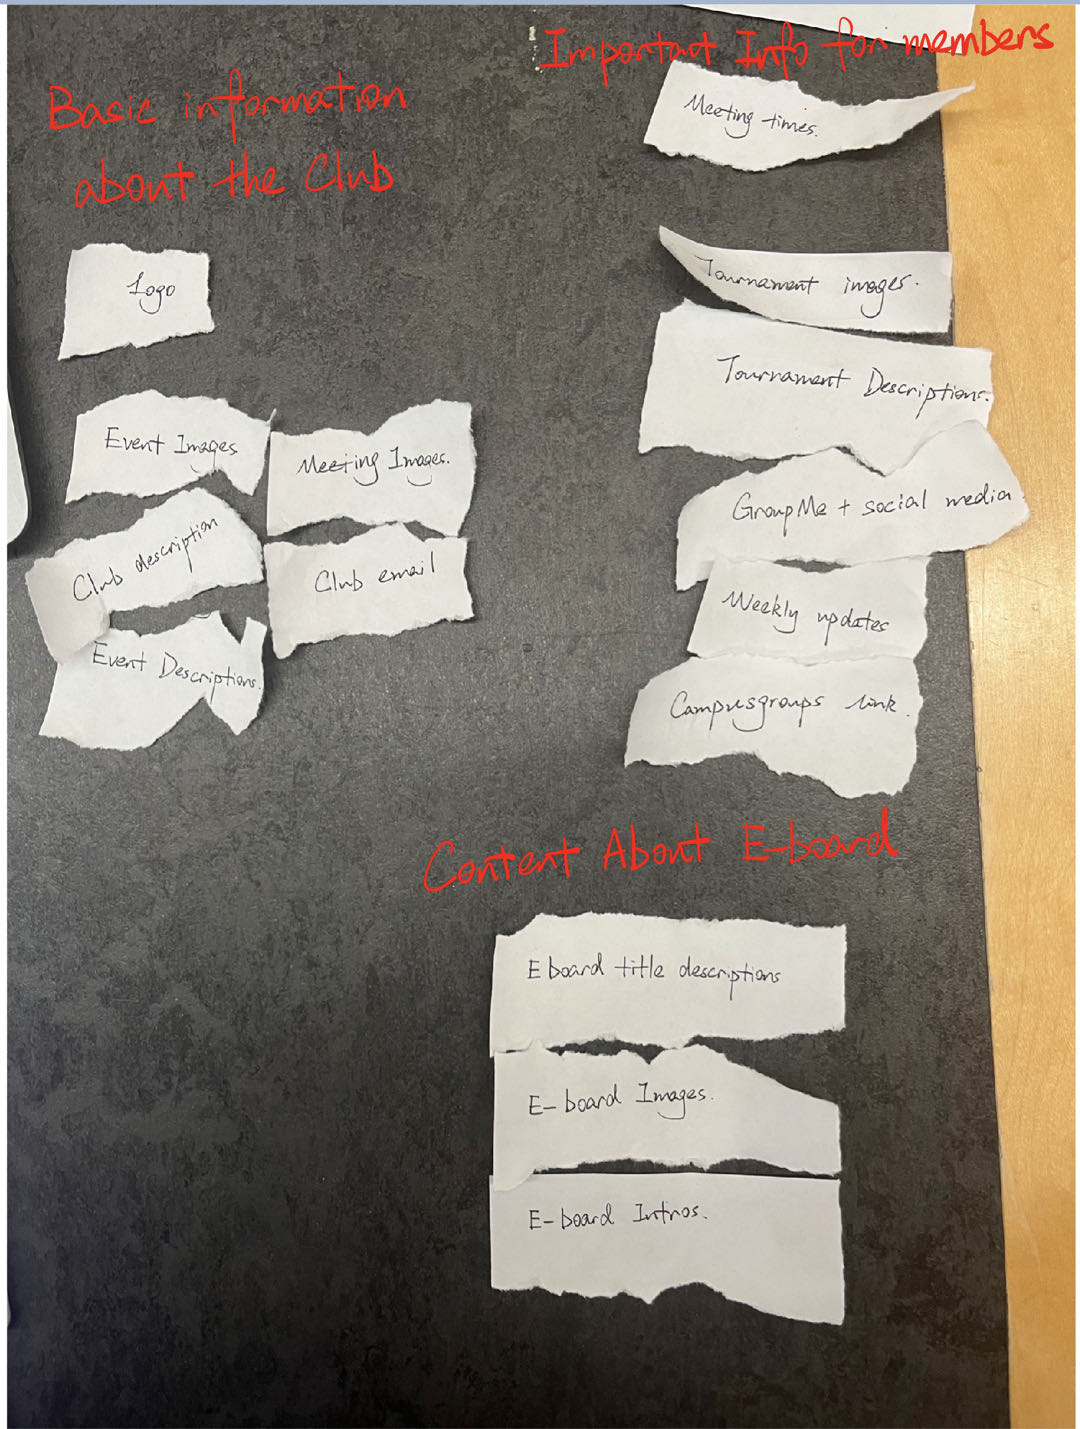 Basic information
about the Club
Logo
Event Images
Meeting Images.
Club description
Club email
Event Descriptions.
Important Info for members
Meeting times.
Tournament images.
Tournament Descriptions.
GroupMe + social media.
Weekly updates
Campusgroups link.
Content About E-board
Eboard title descriptions
E-board Images.
E-board Intros.